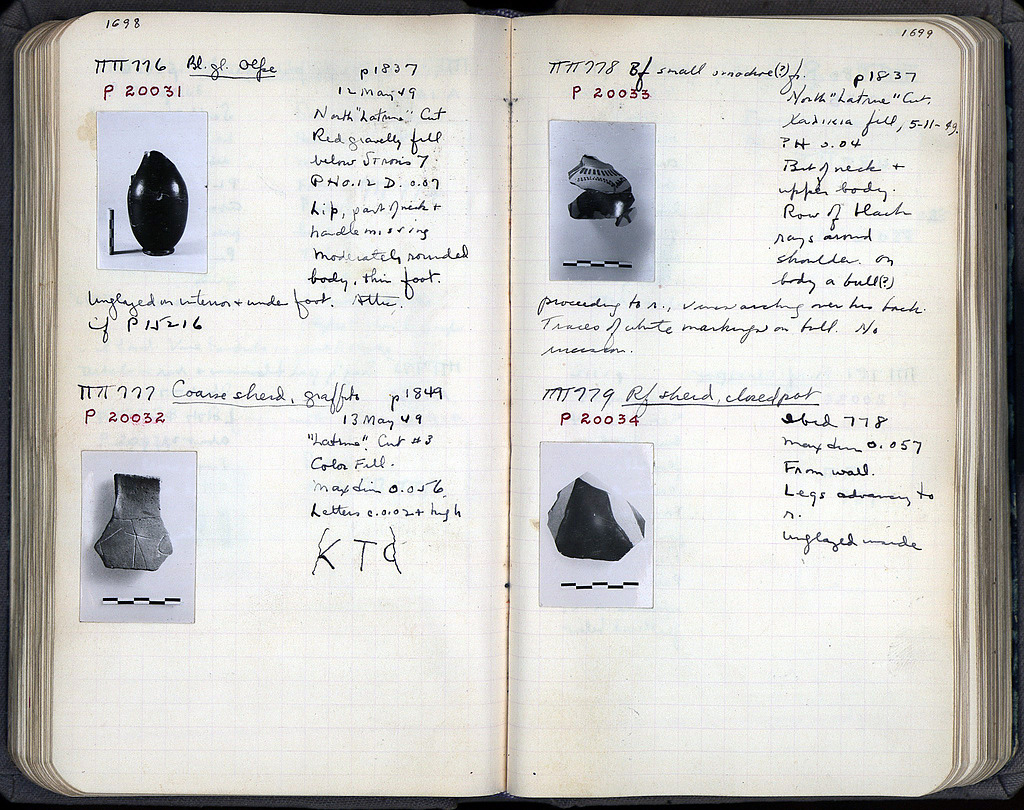 1698
ΠΠ 776 Bl. gl. Olpe p 1837
P 20031
12 May 49
North "Latrine" Cut
Red gravelly fill
below Strosis 7.
PH 0.12 D. 0.07
Lip, part of neck +
handle missing
Moderately rounded
body, thin foot.
Unglazed on interior + under foot. Attic.
cf P 15216
ΠΠ 777 Coarse sherd, graffito p 1849
P 20032
13 May 49
"Latrine" Cut #3
Color Fill.
Max dim 0.056
Letters c. 0.02+ high
Κ Τ
1699
ΠΠ 778 Bf small oinochoe(?) fr. p 1837
P 20033
North "Latrine" Cut,
Xalikia fill, 5-11-49.
PH 0.04
Bit of neck +
upper body.
Row of black
rays around
shoulder. On
body a bull(?)
proceeding to r., vines arching over his back.
Traces of white markings on bull. No
incision.
ΠΠ 779 Rf sherd, closed pot
P 20034
ibid 778
Max dim 0.057
From wall.
Legs advancing to
r.
Unglazed inside